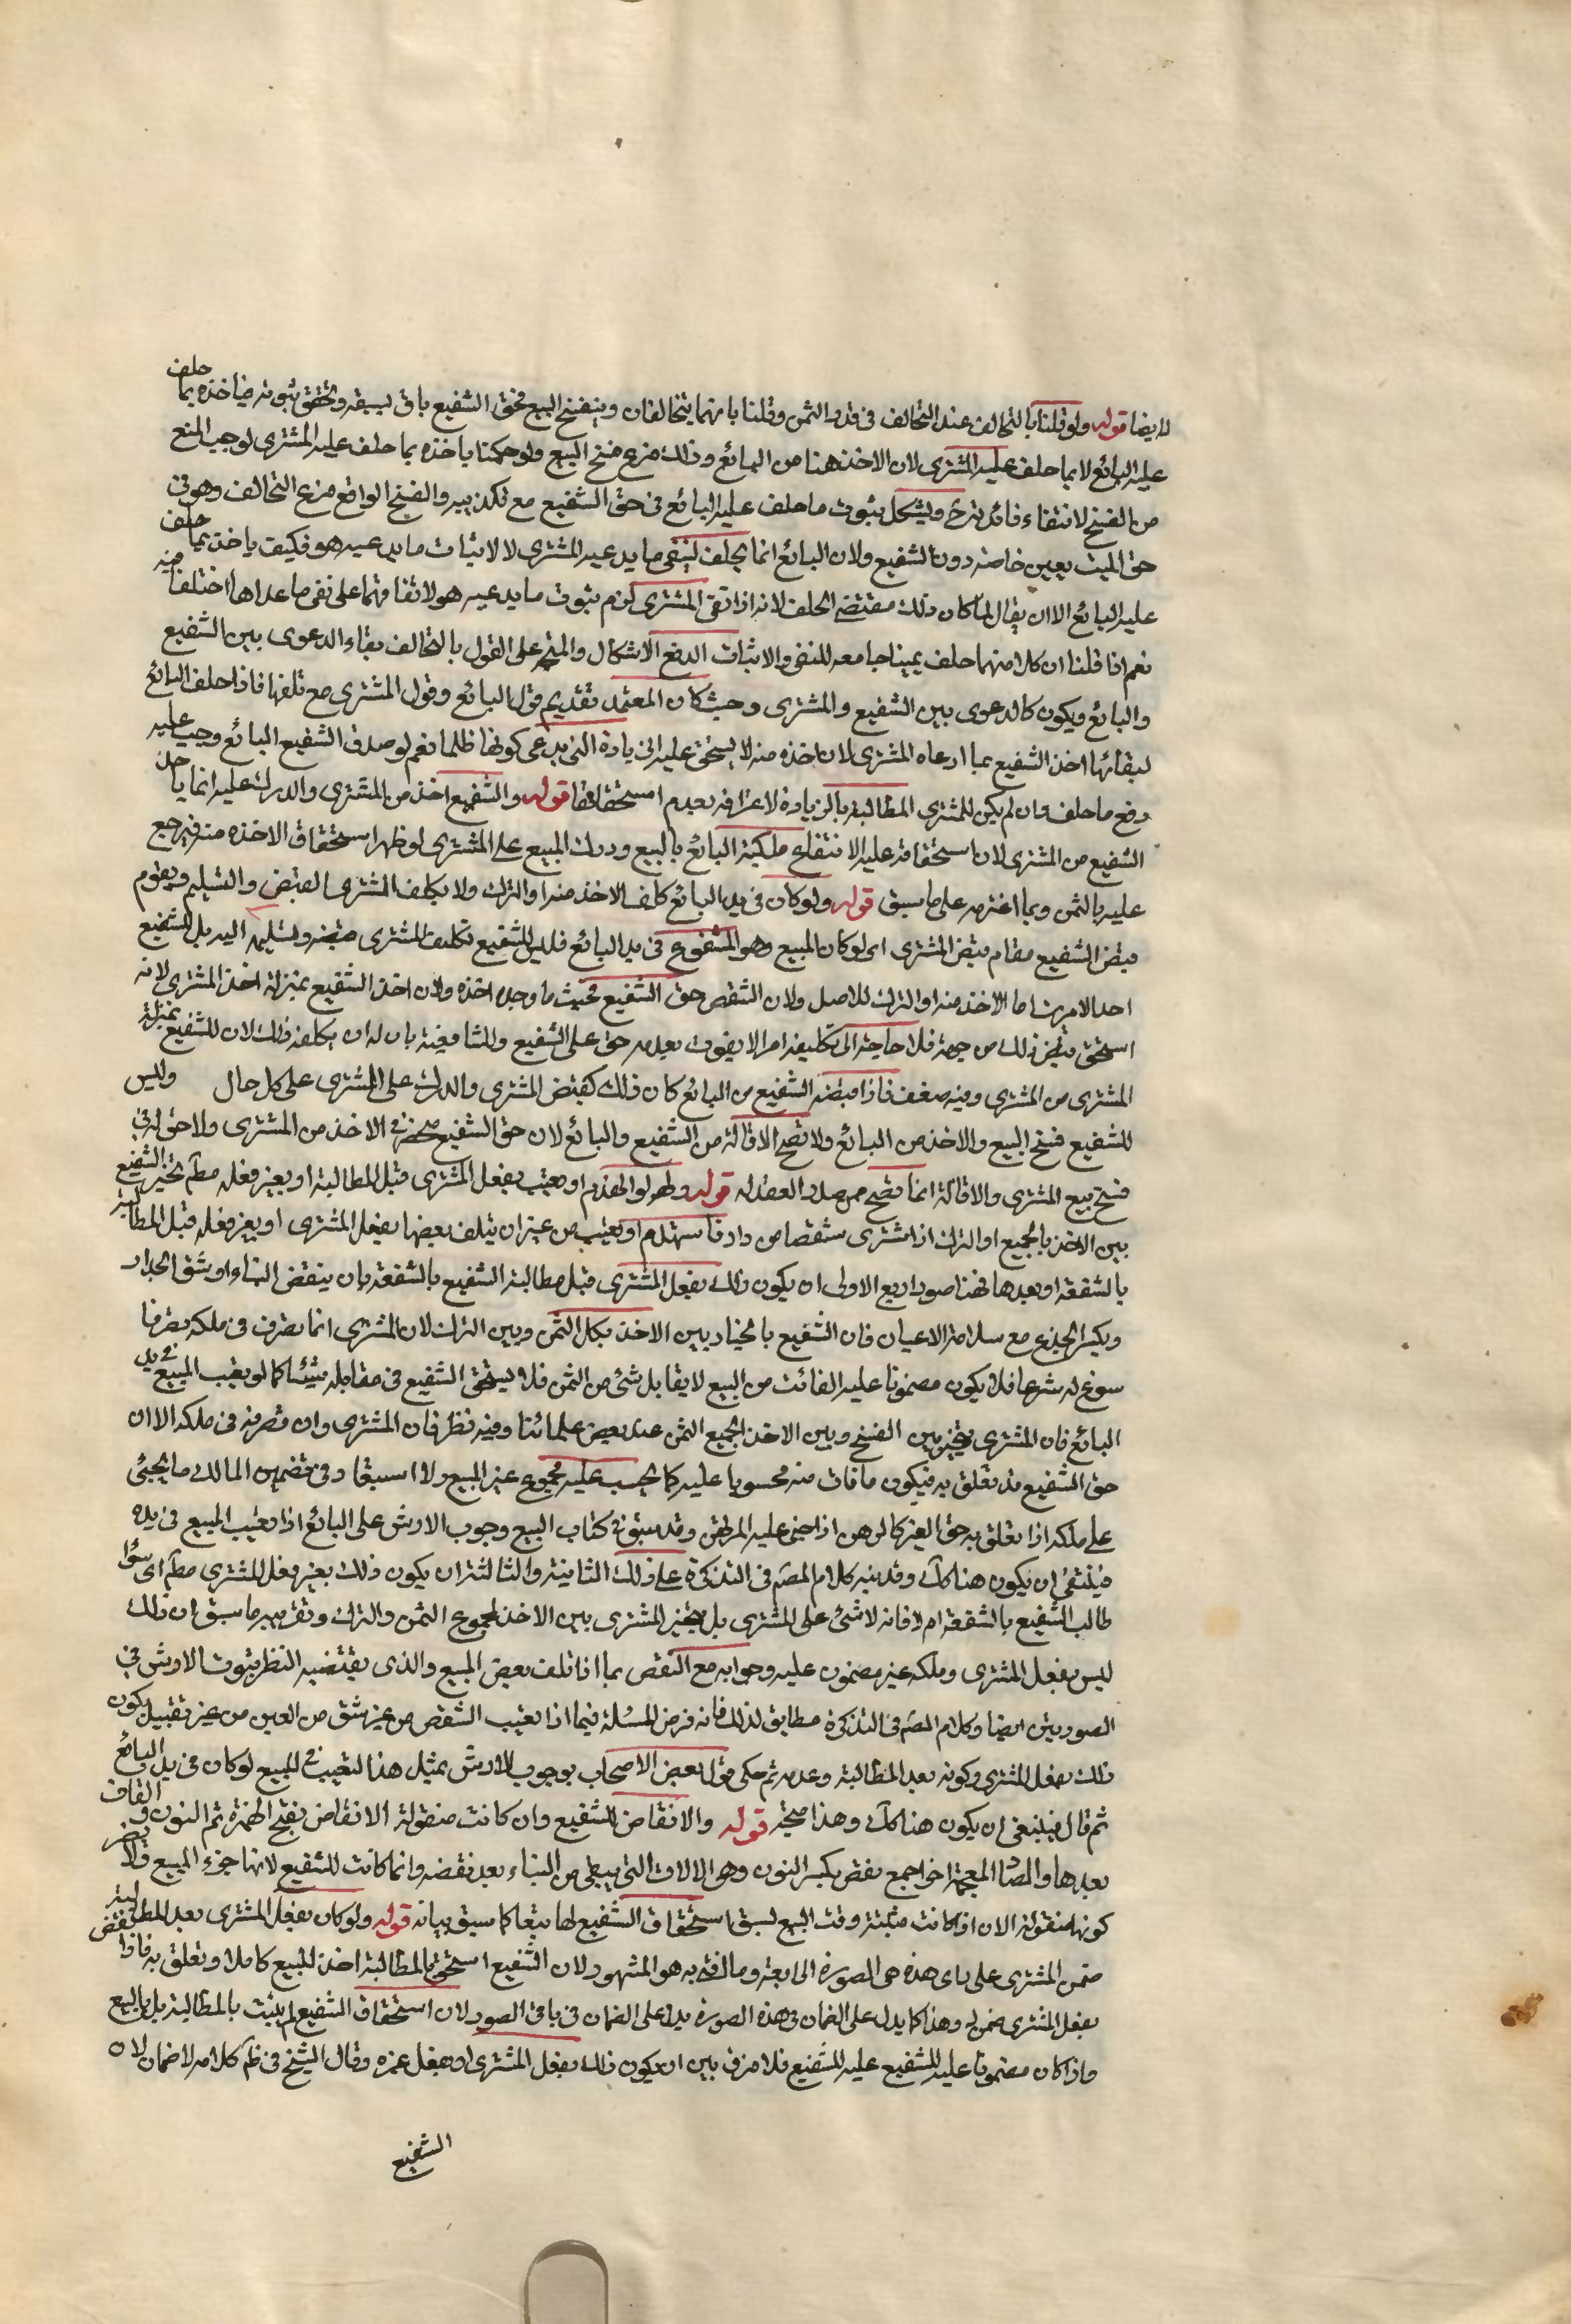 له ايضا قوله ولو قلنا بالتحالف عند التخالف فى قدر الثمن وقلنا بانهما يتحالفان وينفسخ البيع فحق الشفيع باق لسبقه وتحقق ثبوته فياخذه بما حلف
عليه البائع لا بما حلف عليه المشترى لان الاخذ هنا من البائع وذلك فرع فسخ البيع ولو حكمنا باخذه بما حلف عليه المشترى لوجب المنع
من الفسخ لانتفاء فائدته ويشكل بثبوت ما حلف عليه البائع فى حق الشفيع مع تكذيبه والفسخ الواقع فرع التحالف وهو فى
حق الميت بعين خاصة دون الشفيع ولان البائع انما يحلف لنفى ما يدعيه المشترى لا لاثبات ما يدعيه هو فكيف ياخذ بما حلف
عليه البائع الا ان يقال لما كان ذلك مقتضى الحلف لانه اذا انتفى المشترى لزم ثبوت ما يدعيه هو لاتفاقهما على نفى ما عداها اختلفا فيه
نعم اذا قلنا ان كلا منهما حلف يمينا جامعه للنفى والاثبات اندفع الاشكال والمتجه على القول بالتحالف بقاء الدعوى بين الشفيع
والبائع ويكون كالدعوى بين الشفيع والمشترى وحيث كان المعتمد تقديم قول البائع وقول المشترى مع تلفها فاذا حلف البائع
لبقائها اخذ الشفيع بما ادعاه المشترى لان اخذه منه لا يستحق عليه الزيادة التى يدعى كونها ظلما نعم لو صدق الشفيع البائع وجب عليه
دفع ما حلف وان لم يكن للمشترى المطالبة بالزيادة لاعترافه بعدم استحقاقها قوله والشفيع اخذ من المشترى والدرك عليه انما ياخذ
الشفيع من المشترى لان استحقاقه عليه الانتفاع ملكية البائع بالبيع ودرك المبيع على المشترى لو ظهر استحقاق الاخذه منه فيرجع
عليه بالثمن وبما اغترمه على ما سبق قوله ولو كان فى يد البائع كلف الاخذ منه او الترك ولا يكلف المشترى القبض والتسليم ويقوم
قبض الشفيع مقام قبض المشترى اى لو كان المبيع وهو المشفوع فى يد البائع فليس للشفيع تكليف المشترى قبضه وتسليمه اليه بل للشفيع
احد الامرين اما الاخذ منه او الترك للاصل ولان الشقص حق الشفيع فحيث ما وجده اخذه ولان اخذ الشفيع بمنزلة اخذ المشترى لانه
استحق قبض ذلك من جهته فلا حاجة الى تكليفه امرا لا يفوت بعدمه حق على الشفيع وللشافعية بان له ان يكلفه ذلك لان للشفيع بمنزلة
المشترى من المشترى وفيه ضعف فاذا قبضه الشفيع من البائع كان ذلك كقبض المشترى والدرك على المشترى على كل حال وليس
للشفيع فسخ البيع والاخذ من البائع ولا تصح الاقالة من الشفيع والبائع لان حق الشفيع منحصر فى الاخذ من المشترى ولا حق له فى
فسخ بيع المشترى والاقالة انما تصح ممن صدر العقد له قوله ولو انهدم او تعيب بفعل المشترى قبل المطالبة او بغير فعله مطلقا تخير الشفيع
بين الاخذ بالجميع او الترك اذا اشترى شقصا من دار فاستهدم او تعيب من غير ان يتلف بعضها بفعل المشترى او بغير فعله قبل المطالبة
بالشفعة او بعدها فهنا صور اربع الاولى ان يكون ذلك بفعل المشترى قبل مطالبة الشفيع بالشفعة بان ينقض البناء او شق الجدار
ويكسر الجذع مع سلامة الاعيان فان الشفيع بالخيار بين الاخذ بكل الثمن وبين الترك لان المشترى انما تصرف فى ملكه تصرفا
سوغ له شرعا فلا يكون مضمونا عليه الفائت من البيع لا يقابل شئ من الثمن فلا يستحق الشفيع فى مقابله شيئا كما لو تعيب المبيع فى يد
البائع فان المشترى يتخير بين الفسخ وبين الاخذ بجميع الثمن عند بعض علمائنا وفيه نظر فان المشترى وان تصرفه فى ملكه الا ان
حق الشفيع قد تعلق به فيكون ما فات منه محسوبا عليه كما يحسب عليه مجموع عين المبيع ولا استبعاد فى تضمين المالك ما يجنى
على ملكه اذا تعلق به حق الغير كالرهن اذا جنى عليه المرتهن وقد سبق فى كتاب البيع وجوب الارش على البائع اذا تعيب المبيع فى يده
فينبغى ان يكون هنا كك وقد نبه كلام المصنف فى التذكرة على ذلك الثانية والثالثة ان يكون ذلك بغير فعل المشترى مطلقا اى سواء
طالب الشفيع بالشفعة ام لا فانه لا شئ على المشترى بل يتخير المشترى بين الاخذ بمجموع الثمن والترك وتقريبه ما سبق ان ذلك
ليس بفعل المشترى وملكه غير مضمون عليه وجوابه مع النقص بما اذا تلف بعض المبيع والذى يقتضيه النظر ثبوت الارش فى
الصورتين ايضا وكلام المصنف فى التذكرة مطابق لذلك فانه فرض المسئلة فيما اذا تعيب الشقص من غير شق من العين من غير تقييد بكون
ذلك بفعل المشترى وكونه بعد المطالبة وعدمه ثم حكى قول بعض الاصحاب بوجوب الارش بمثل هذا التعيب فى المبيع لو كان فى يد البائع
ثم قال فينبغى ان يكون هنا كك وهذا صحيح قوله والانقاض للشفيع وان كانت منقولة الانقاض بفتح الهمزة ثم النون والقاف
بعدها والضاد المعجمة اخرا جمع نقض بكسر النون وهى الالات التى تبقى من البناء بعد نقضه وانما كانت للشفيع لانها جزء المبيع فلا يضر
كونها منقولة الان اذا كانت مثبتة وقت البيع لسبق استحقاق الشفيع لها تبعا كما سبق بيانه قوله ولو كان بفعل المشترى بعد المطالبة
ضمن المشترى على راى هذه هى الصورة الرابعة وما افتى به هو المشهور لان الشفيع استحق بالمطالبة اخذ المبيع كاملا وتعلق به فاذا نقض
بفعل المشترى ضمن له وهذا كما يدل على الضمان فى هذه الصورة يدل على الضمان فى باقى الصور لان استحقاق الشفيع لم يثبت بالمطالبة بل بالبيع
واذا كان مضمونا عليه للشفيع عليه للشفيع فلا فرق بين ان يكون ذلك بفعل المشترى او بفعل غيره وقال الشيخ فى ظاهر كلامه لا ضمان لان
الشفيع